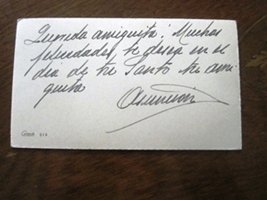 Querida amiguita: Muchas
felicidades, te desea en el
dia de tu Santo tu ami-
guita
Asunción